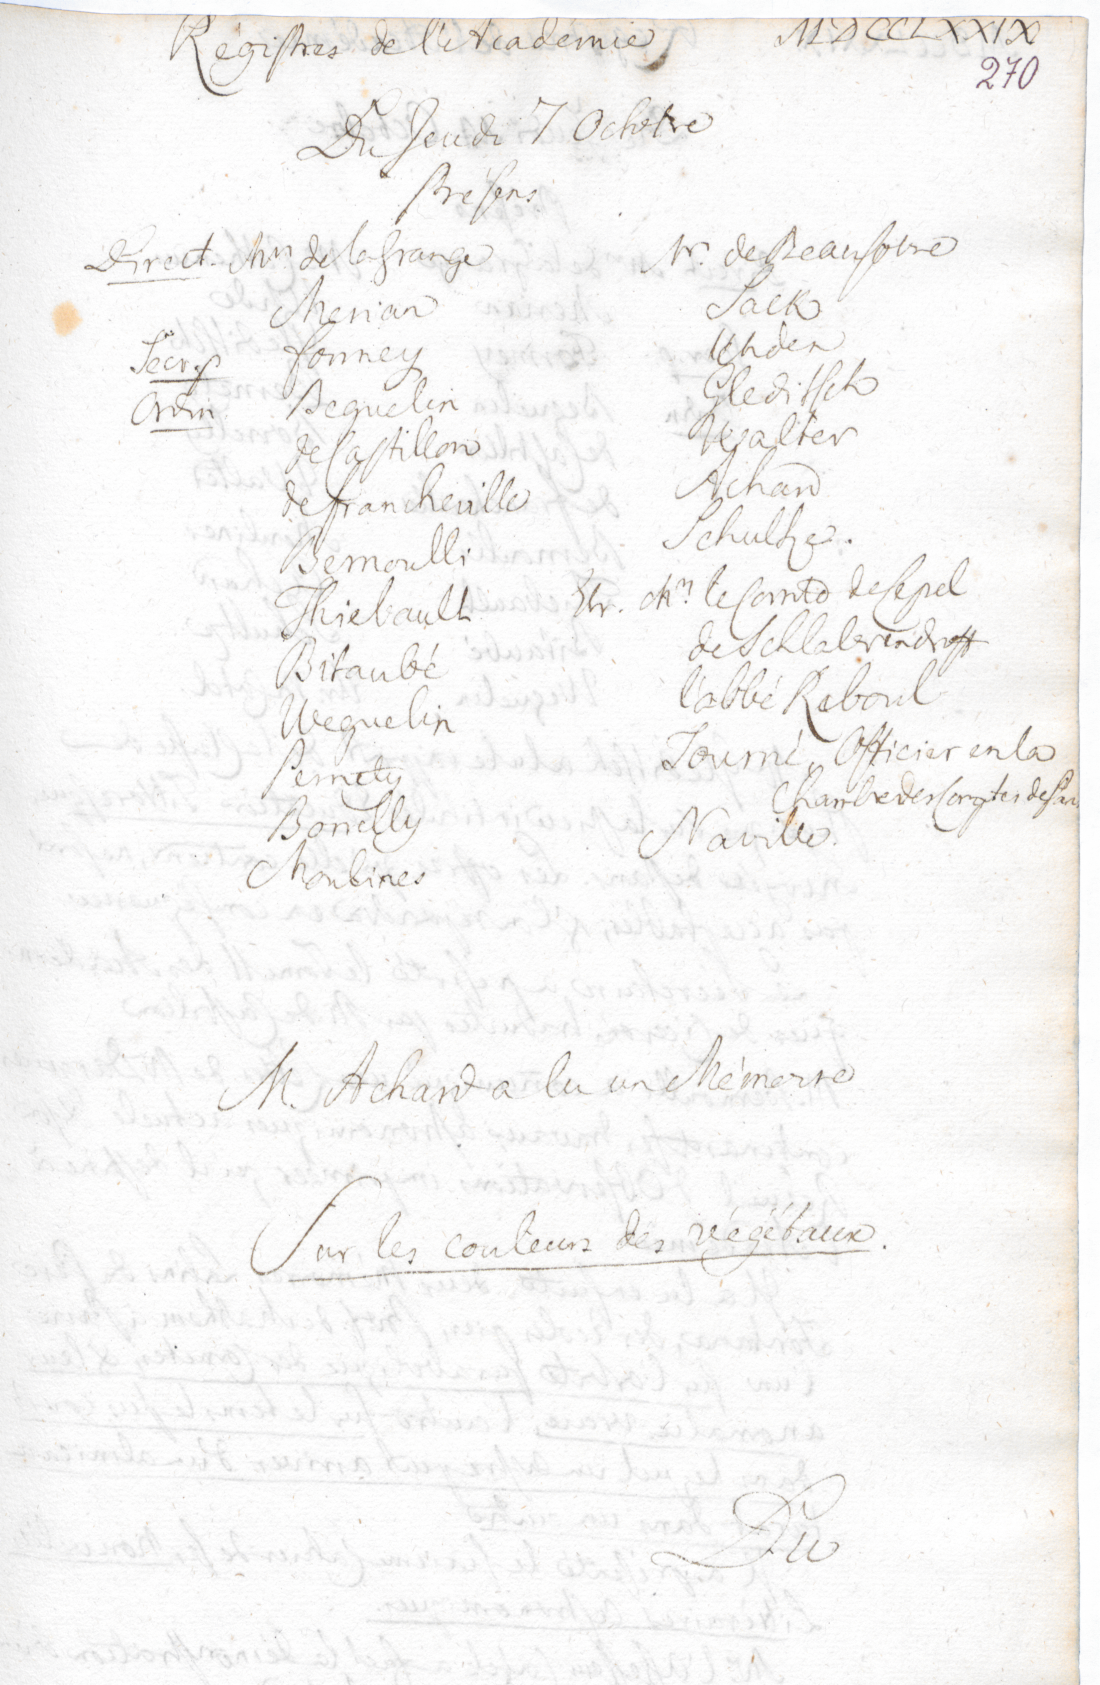 Régistres de l'Academie MDCCLXXIX
270
Du Jeudi 7 Octobre
Présens
Direct. Mrs de la Grange
Merian
Secr. Formey
Ordin. Beguelin
de Castillon
de Francheville
Bernoulli
Thiebault
Bitaubé
Weguelin
Pernety
Borrelly
Moulines
Mr. de Beausobre
Sack
Uhden
Gleditsch
Walter
Achard
Schultze.
Etr. Mrs le Comte de
de Schlabrendroff
l'abbé Reboul
Tourné, Officier en la
Chambre des Comptes de
Naville.
M. Achard a lu un Mémoire
Sur les couleurs des végétaux.
Du